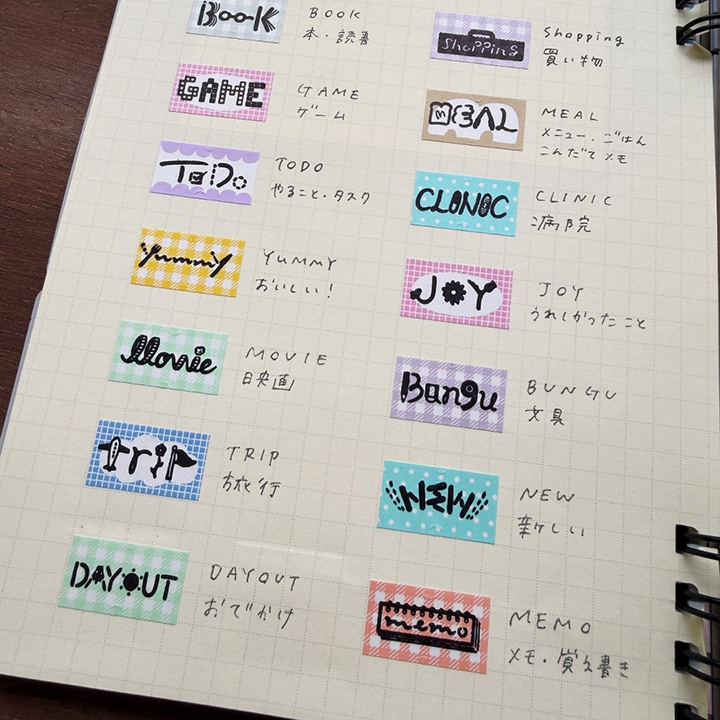 BOOK
BOOK
本・読書
GAME
GAME
ゲーム
ToDo
TODO
やること・タスク
yummy
YUMMY
おいしい!
Movie
MOVIE
映画
trip
TRIP
旅行
DAYOUT
DAYOUT
おでかけ
Shopping
Shopping
買い物
MEAL
MEAL
メニュー・ごはん
こんだてメモ
CLINIC
CLINIC
病院
JOY
JOY
うれしかったこと
Bungu
BUNGU
文具
NEW
NEW
新しい
memo
MEMO
メモ・覚え書き